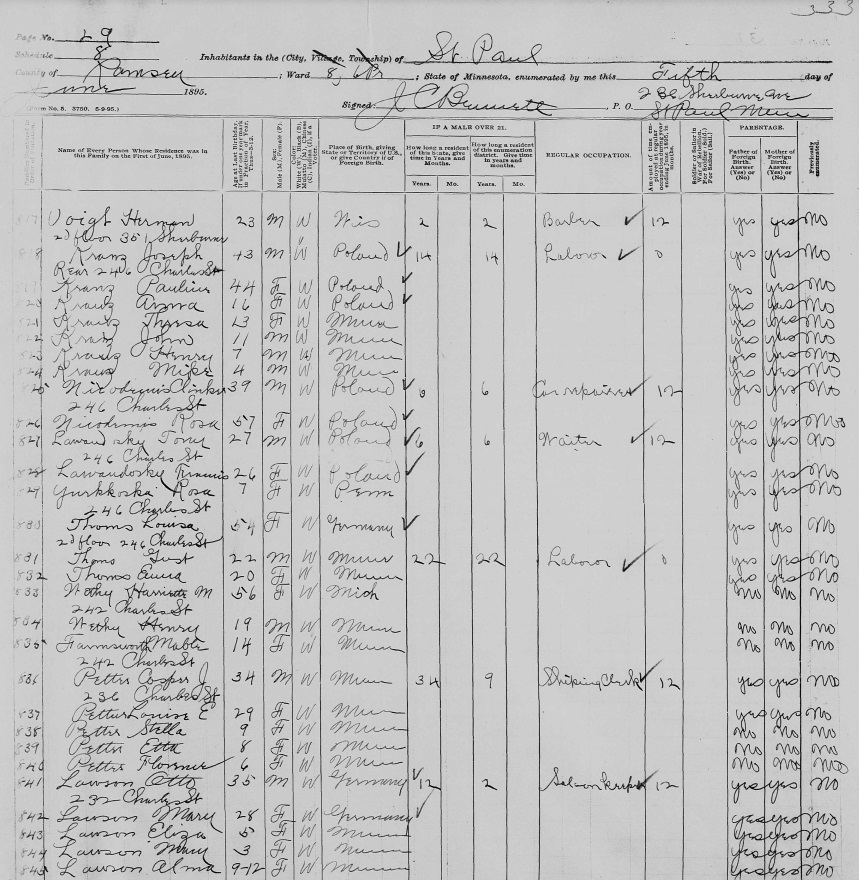 333
Page No. 29
Schedule 8
Inhabitants in the (City, Village, Township) of St. Paul
County of Ramsey ; Ward 8, 6 Pr ; State of Minnesota, enumerated by me this Fifth day of
June 1895.
Signed: J C Bennett , P. O. 286 Sherburne Ave
St Paul Minn
(Form No. 8. 3750. 5-9-95.)
Name of Every Person Whose Residence was in this Family on the First of June, 1895.
Age at Last Birthday.
Sex. Male (M.) Female (F.)
Place of Birth, giving State or Territory of U.S., or give Country if of Foreign Birth.
IF A MALE OVER 21.
How long a resident of this State, give time in Years and Months.
How long a resident of this enumeration district. Give time in years and months.
Years. Mo. Years. Mo.
REGULAR OCCUPATION.
PARENTAGE.
Father of Foreign Birth. Answer (Yes) or (No)
Mother of Foreign Birth. Answer (Yes) or (No)
Previously enumerated.
817 Voigt Herman 23 M W Wis 2 2 Barber ✓ 12 yes yes No
2d floor 351 Sherburne
818 Kranz Joseph 43 M W Poland ✓ 14 14 Laboror ✓ 0 yes yes No
Rear 246 Charles St
Kranz Pauline 44 F W Poland ✓ yes yes No
Kranz Anna 16 F W Poland ✓ yes yes No
821 Kranz Thresa 13 F W Minn yes yes No
822 Kranz John 11 M W Minn yes yes No
823 Kranz Henry 7 M W Minn yes yes No
824 Kranz Mike 4 M W Minn yes yes No
825 Nicodemis 39 M W Poland ✓ 6 6 Car repairer ✓ 12 yes yes No
246 Charles St
826 Nicodemis Rosa 57 F W Poland ✓ yes yes No
827 Lawandosky Tony 27 M W Poland ✓ 6 6 Waiter ✓ 12 yes yes No
246 Charles St
828 Lawandosky 26 F W Poland ✓ yes yes No
829 Rosa 7 F W Penn yes yes No
246 Charles St
830 Thoms Louisa 54 F W Germany ✓ yes yes No
2d floor 246 Charles St
831 Thoms Gust 22 M W Minn 22 22 Laboror ✓ 0 yes yes No
832 Thoms Emma 20 F W Minn yes yes No
833 Wethy Harriette M 56 F W Mich No No No
242 Charles St
834 Wethy Henry 19 M W Minn No No No
835 Farmsworth Mable 14 F W Minn No No No
242 Charles St
836 Petter Casper J 34 M W Minn 34 9 Shiping Clerk ✓ 12 yes yes No
236 Charles St
837 Petter Louise E 29 F W Minn yes yes No
838 Petter Stella 9 F W Minn No No No
839 Petter Etta 8 F W Minn No No No
840 Petter Florence 6 F W Minn No No No
841 Lawson Otto 35 M W Germany ✓ 12 2 Saloon keeper ✓ 12 yes yes No
232 Charles St
842 Lawson Mary 28 F W Germany ✓ yes yes No
843 Lawson Eliza 5 F W Minn yes yes No
844 Lawson Mary 3 F W Minn yes yes No
845 Lawson Alma 9-12 F W Minn yes yes No